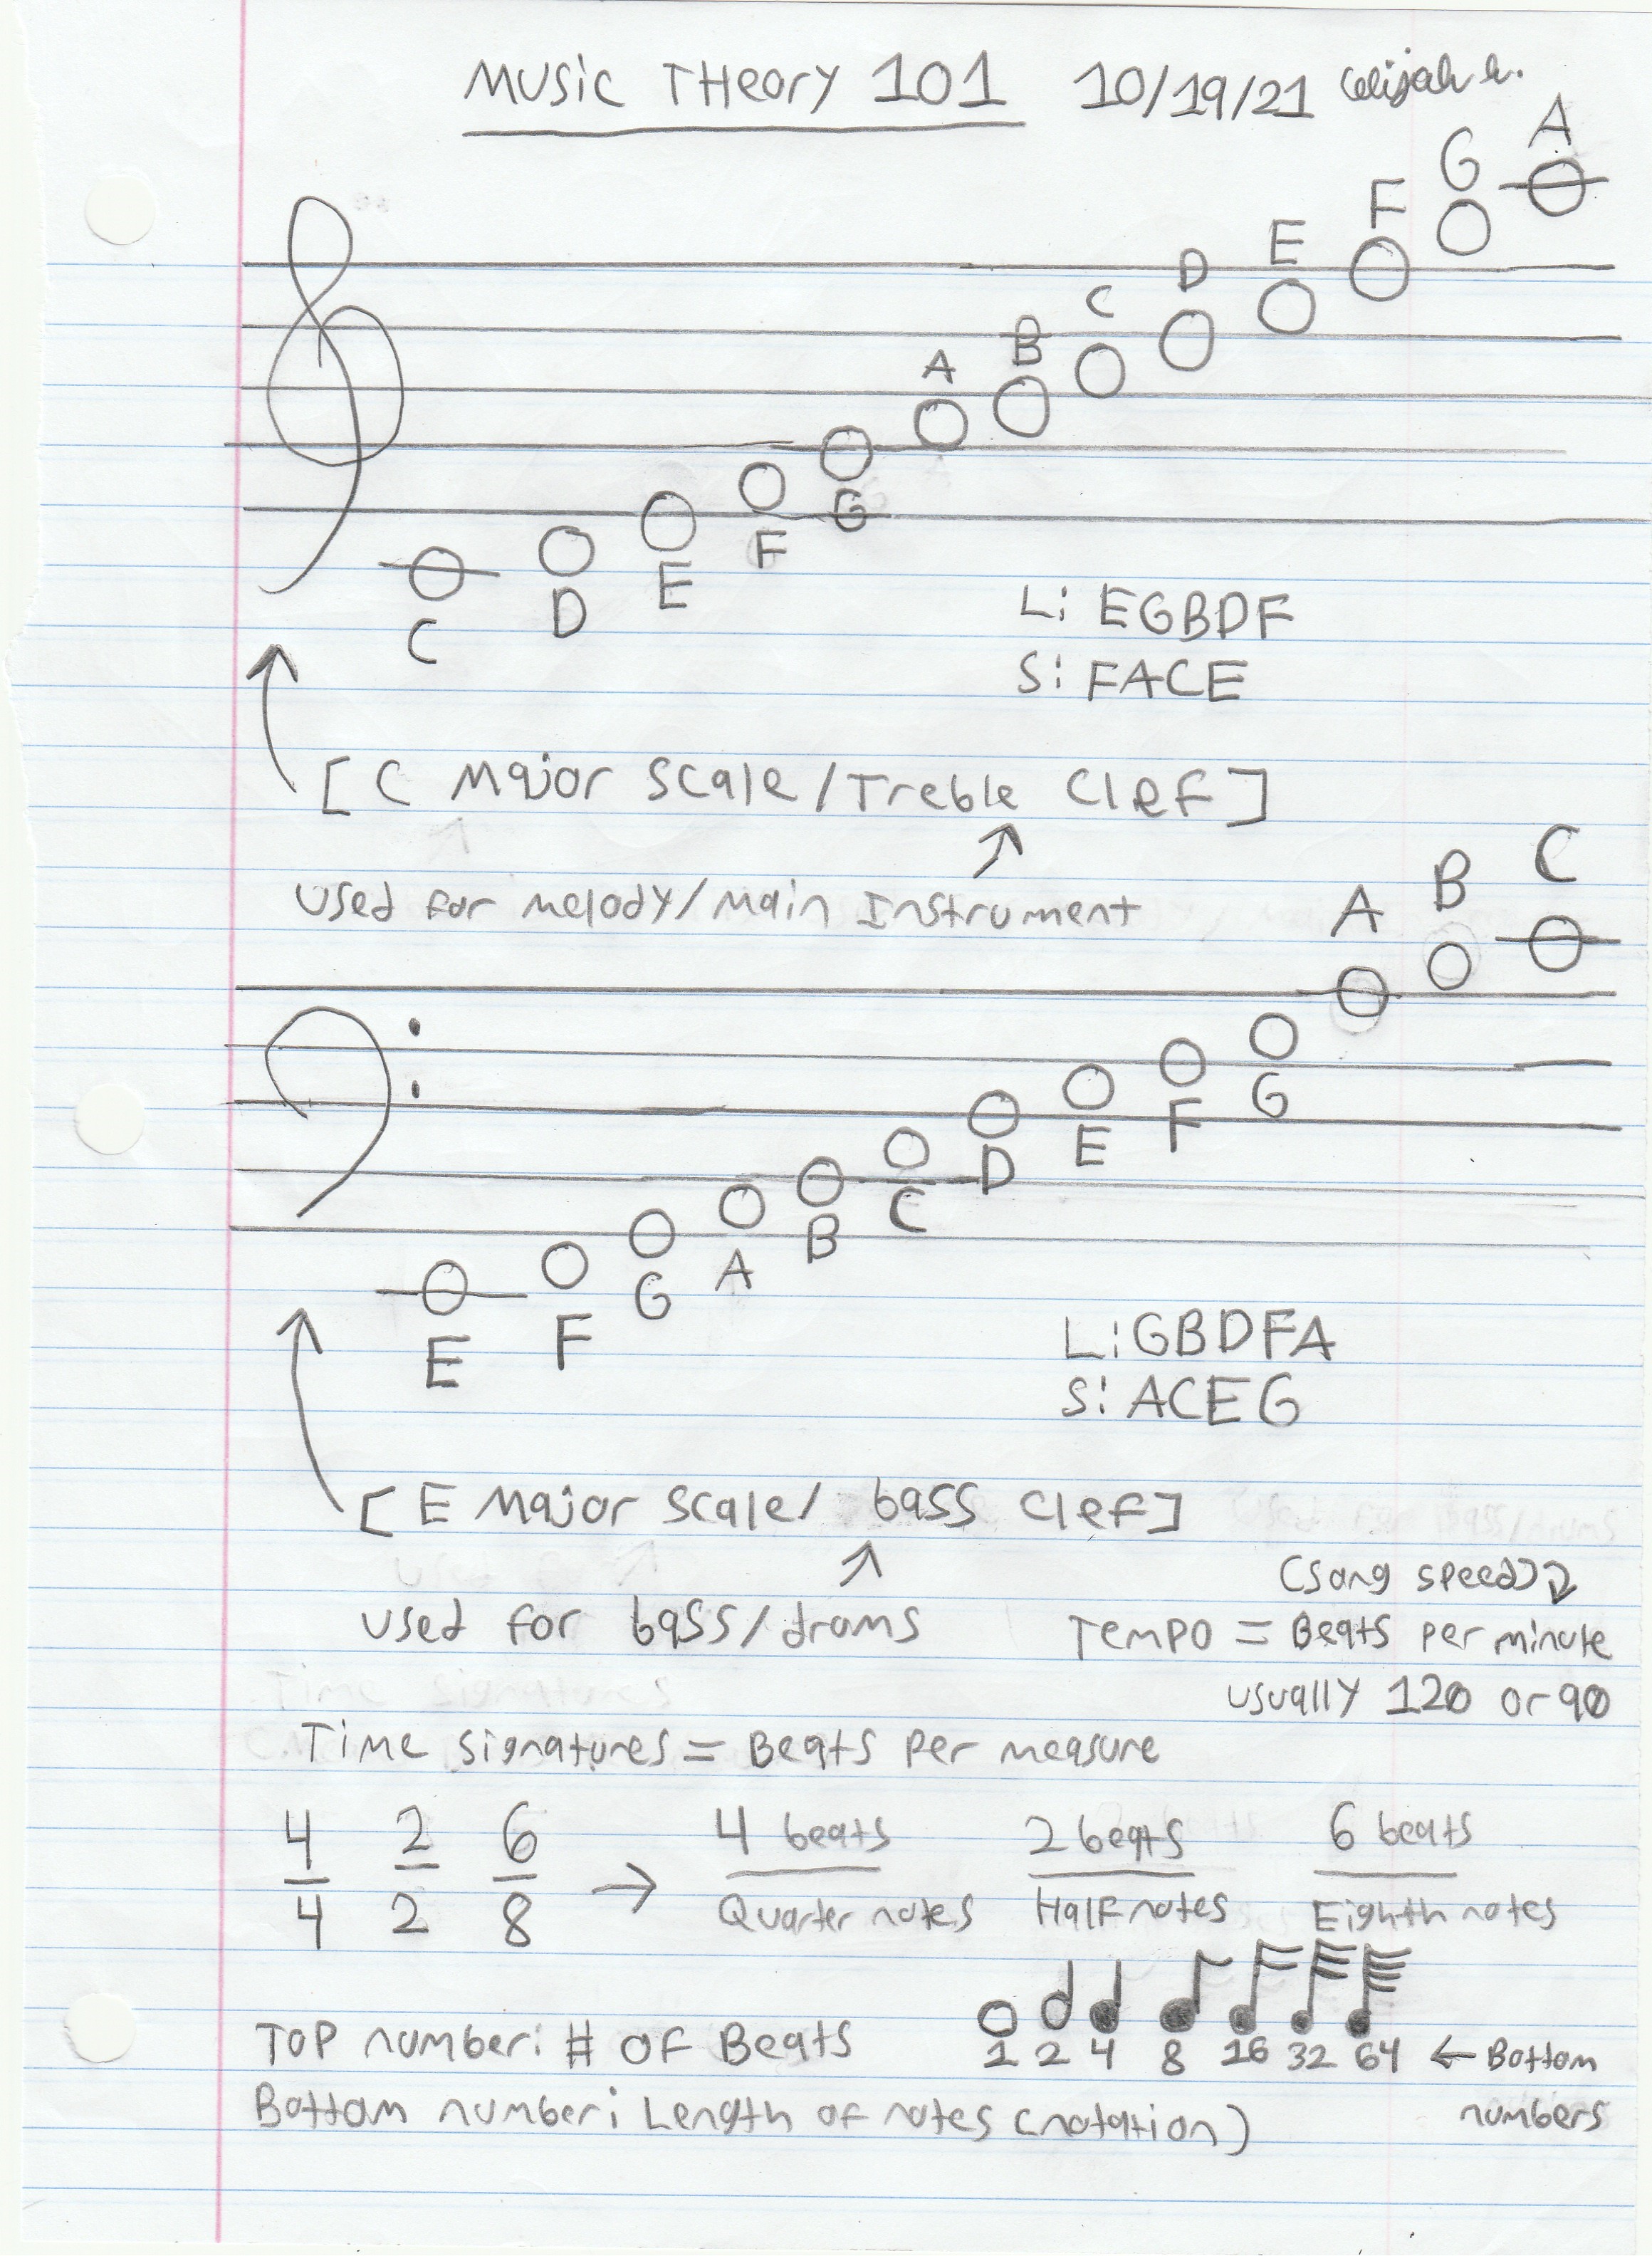 Music Theory 101 10/19/21 Elijah h.
C D E F G A B C D E F G A
L: EGBDF
S: FACE
[C Major Scale/Treble Clef]
Used for Melody/Main Instrument
E F G A B C D E F G A B C
L: GBDFA
S: ACEG
[E Major Scale/ bass Clef]
used for bass/drums
(Song speed)
Tempo = Beats per minute
usually 120 or 90
Time signatures = Beats per measure
4/4 2/2 6/8 → 4 beats/Quarter notes 2 beats/Half notes 6 beats/Eighth notes
Top number: # of Beats
1 2 4 8 16 32 64 ← Bottom numbers
Bottom number: Length of notes (notation)